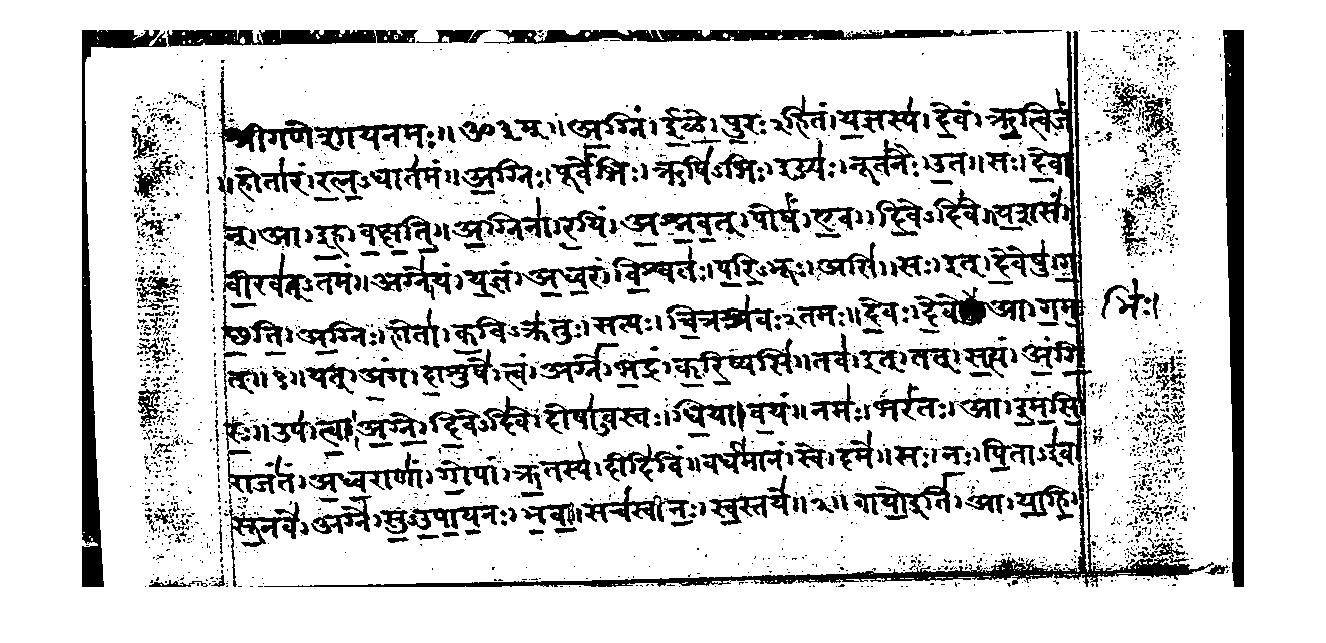 श्रीगणेशायनमः॥ॐ३म्॥अ॒ग्निं।ई॒ळे॒।पु॒रःऽहि॑तं।य॒ज्ञस्य॑।दे॒वं।ऋ॒त्विजं॑
॥होता॑रं।र॒त्न॒ऽधात॑मं॥अ॒ग्निः।पूर्वे॑भिः।ऋषि॑ऽभिः।ईड्यः॑।नूत॑नैः।उ॒त॥सः।दे॒वा
न्।आ।इ॒ह।व॒क्ष॒ति॒॥अ॒ग्निना॑।र॒यिं।अ॒श्न॒व॒त्।पोषं॑।ए॒व।दि॒वेऽदि॑वे॥य॒शसं॑
वी॒रव॑त्ऽतमं॥अग्ने॑।यं।य॒ज्ञं।अ॒ध्व॒रं।वि॒श्वतः॑।प॒रि॒ऽभूः।असि॑॥सः।इत्।दे॒वेषु॑।ग॒
च्छ॒ति॒।अ॒ग्निः।होता॑।क॒विऽक्र॑तुः।स॒त्यः।चि॒त्रश्र॑वःऽतमः॥दे॒वः।दे॒वे आ।ग॒म॒
भिः॑।
त्॥१॥यत्।अं॒ग।दा॒शुषे॑।त्वं।अग्ने॑।भ॒द्रं।क॒रि॒ष्यसि॑॥तव॑।इत्।तत्।स॒त्यं।अं॒गि॒
रः॒॥उप॑।त्वा॒।अ॒ग्ने॒।दि॒वेऽदि॑वे।दोषा॑ऽवस्तः।धि॒या।व॒यं॥नमः॑।भरं॑तः।आ।इ॒म॒सि॒
राजं॑तं।अ॒ध्व॒राणां॑।गो॒पां।ऋ॒तस्य॑।दीदि॑विं॥वर्ध॑मानं।स्वे।दमे॑॥सः।नः॒।पि॒ताऽइ॑व
सू॒नवे॑।अग्ने॑।सु॒ऽउ॒पा॒य॒नः।भ॒व॒॥सच॑स्व।नः॒।स्व॒स्तये॑॥२॥वायो॒इति॑।आ।या॒हि॒।